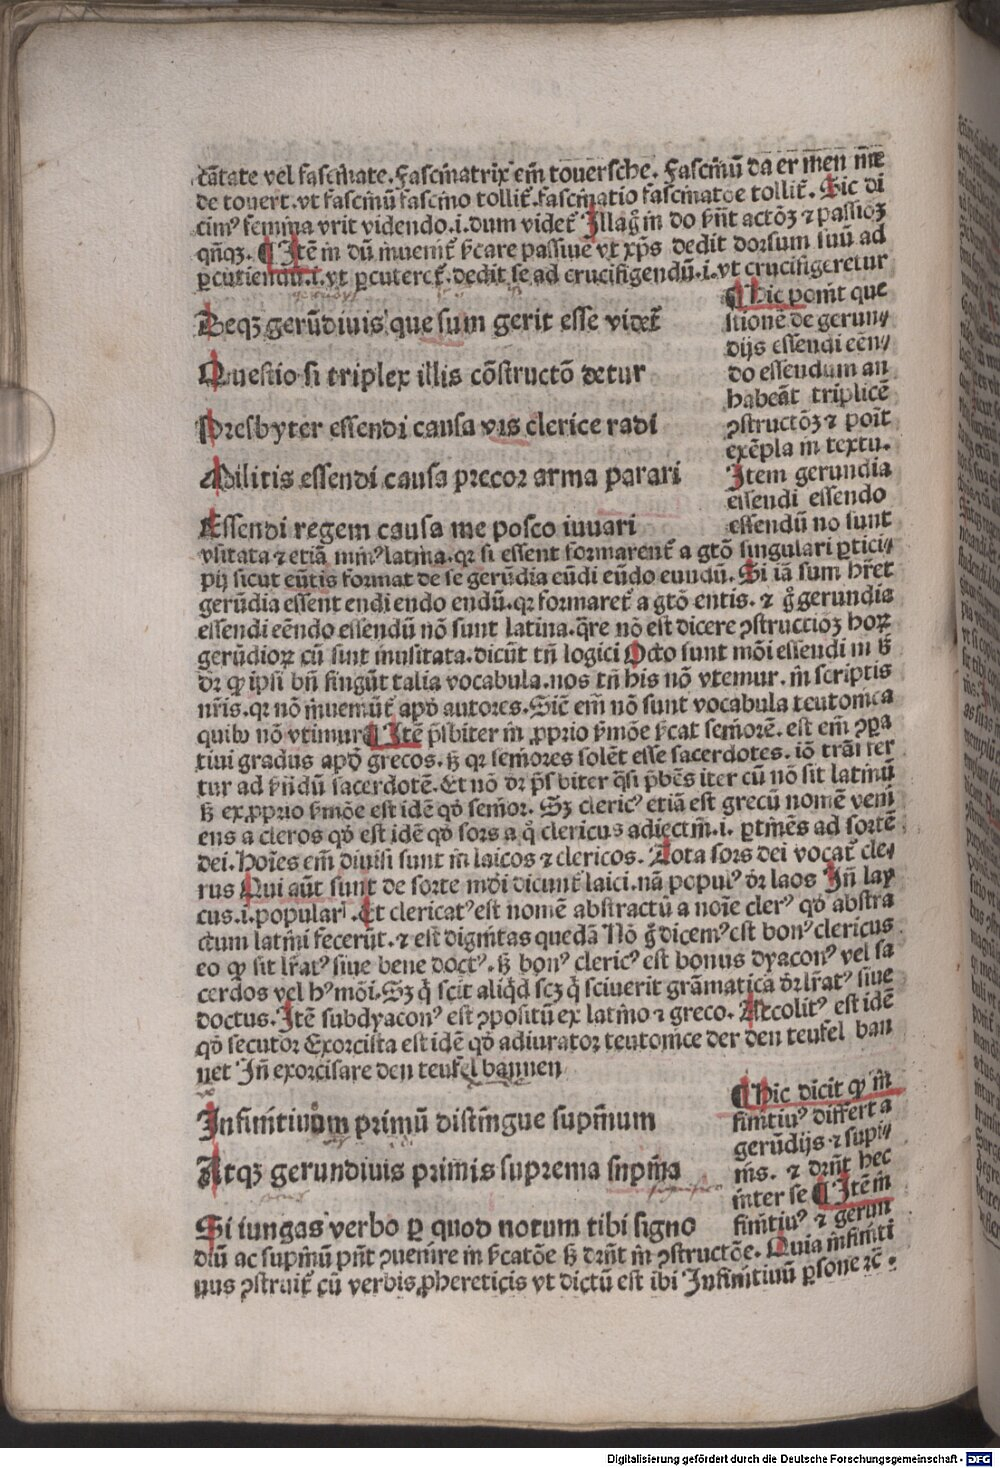 cãtate vel fascinate. Fascinatrix em̃ touersche. Fascinũ da er men me
de touert. vt fascinũ fascino tollit̃. fascinatio fascinatoe tollit̃. Sic di
cimꝰ femina vrit videndo .i. dum videt̃ Illag̃ in do pñt actõꝫ ⁊ passioꝫ
qñqꝫ. ¶ Itẽ in dũ inuenit̃ ſ̃care passiue vt xp̃s dedit dorsum suũ ad
ꝑcutiendũ .i. vt ꝑcuteret̃. dedit se ad crucifigendũ .i. vt crucifigeretur
Deqꝫ gerũdiuis que sum gerit esse videt̃
Questio si triplex illis cõstructõ detur
Presbyter essendi causa vis clerice radi
Militis essendi causa precor arma parari
Essendi regem causa me posco iuuari
¶ Hic ponit que
stionẽ de gerun⸗
dijs essendi eẽn⸗
do essendum an
habeãt triplicẽ
ꝯstructõꝫ ⁊ poĩt
exẽpla in textu.
Item gerundia
essendi essendo
essendũ no sunt
vsitata ⁊ etiã minꝰ latina. qr si essent formarent̃ a gtõ singulari ꝑtici⸗
pij sicut eũtis format de se gerũdia eũdi eũdo eundũ. Si iã sum hr̃et
gerũdia essent endi endo endũ. qr formaret̃ a gtõ entis. ⁊ g̊ gerundia
essendi eẽndo essendũ nõ sunt latina. q̃re nõ est dicere ꝯstructioꝫ hoꝝ
gerũdioꝝ cũ sint inusitata. dicũt tñ logici Octo sunt mõi essendi in ſꝫ
dr̃ ꝙ ipsi bñ fingũt talia vocabula. nos tñ his nõ vtemur. in scriptis
nr̃is. qr nõ inueniũt̃ apd̃ autores. Sic em̃ nõ sunt vocabula teutonica
quibꝰ nõ vtimur ¶ Itẽ p̃sbiter in ꝓprio ſ̃mõe ſ̃cat seniorẽ. est em̃ ꝯpa
tiui gradus apd̃ grecos. ſꝫ qr seniores solẽt esse sacerdotes. iõ trãsfer
tur ad ſ̃ñdũ sacerdotẽ. Et nõ dr̃ p̃sbiter q̃si p̃bẽs iter cũ nõ sit latinũ
ſꝫ ex ꝓprio ſ̃mõe est idẽ qd̃ senior. Sꝫ clericꝰ etiã est grecũ nomẽ veni
ens a cleros qd̃ est idẽ qd̃ sors a q̊ clericus adiectiũ .i. ꝑtinẽs ad sortẽ
dei. Hoĩes em̃ diuisi sunt in laicos ⁊ clericos. Nota sors dei vocat̃ cle⸗
rus Qui aũt sunt de sorte mũdi dicunt̃ laici. nã populꝰ dr̃ laos Iñ lay
cus .i. popularis. Et clericatꝰ est nomẽ abstractũ a noĩe clerꝰ qd̃ abstra
ctum latini fecerũt. ⁊ est dignitas quedã Nõ g̊ dicemꝰ est bonꝰ clericus
eo ꝙ sit lr̃atꝰ siue bene doctꝰ. ſꝫ bonꝰ clericꝰ est bonus dyaconꝰ vel sa
cerdos vel hꝰmõi. Sꝫ q̃ scit aliq̃d scꝫ q̃ sciuerit grãmatica dr̃ lr̃atꝰ siue
doctus. Itẽ subdyaconꝰ est ꝯpositũ ex latino ⁊ greco. Accolitꝰ est idẽ
qd̃ secutor Exorcista est idẽ qd̃ adiurator teutonice der den teufel ban
net Iñ exorcisare den teufel bannen
Infinitiuũm primũ distingue supinum
Atqꝫ gerundiuis primis suprema supina
Si iungas verbo ꝑ quod notum tibi signo
¶ Hic dicit ꝙ in
finitiuꝰ differt a
gerũdijs ⁊ supi⸗
nis. ⁊ drñt hec
inter se ¶ Itẽ in
finitiuꝰ ⁊ gerun
diũ ac supinũ pñt ꝯuenire in ſ̃catõe ſꝫ drñt in ꝯstructõe. Quia infiniti
uus ꝯstruit̃ cũ verbis ꝓhereticis vt dictũ est ibi Infinitiuũ ꝑsone ⁊c̃.
Digitalisierung gefördert durch die Deutsche Forschungsgemeinschaft - DFG